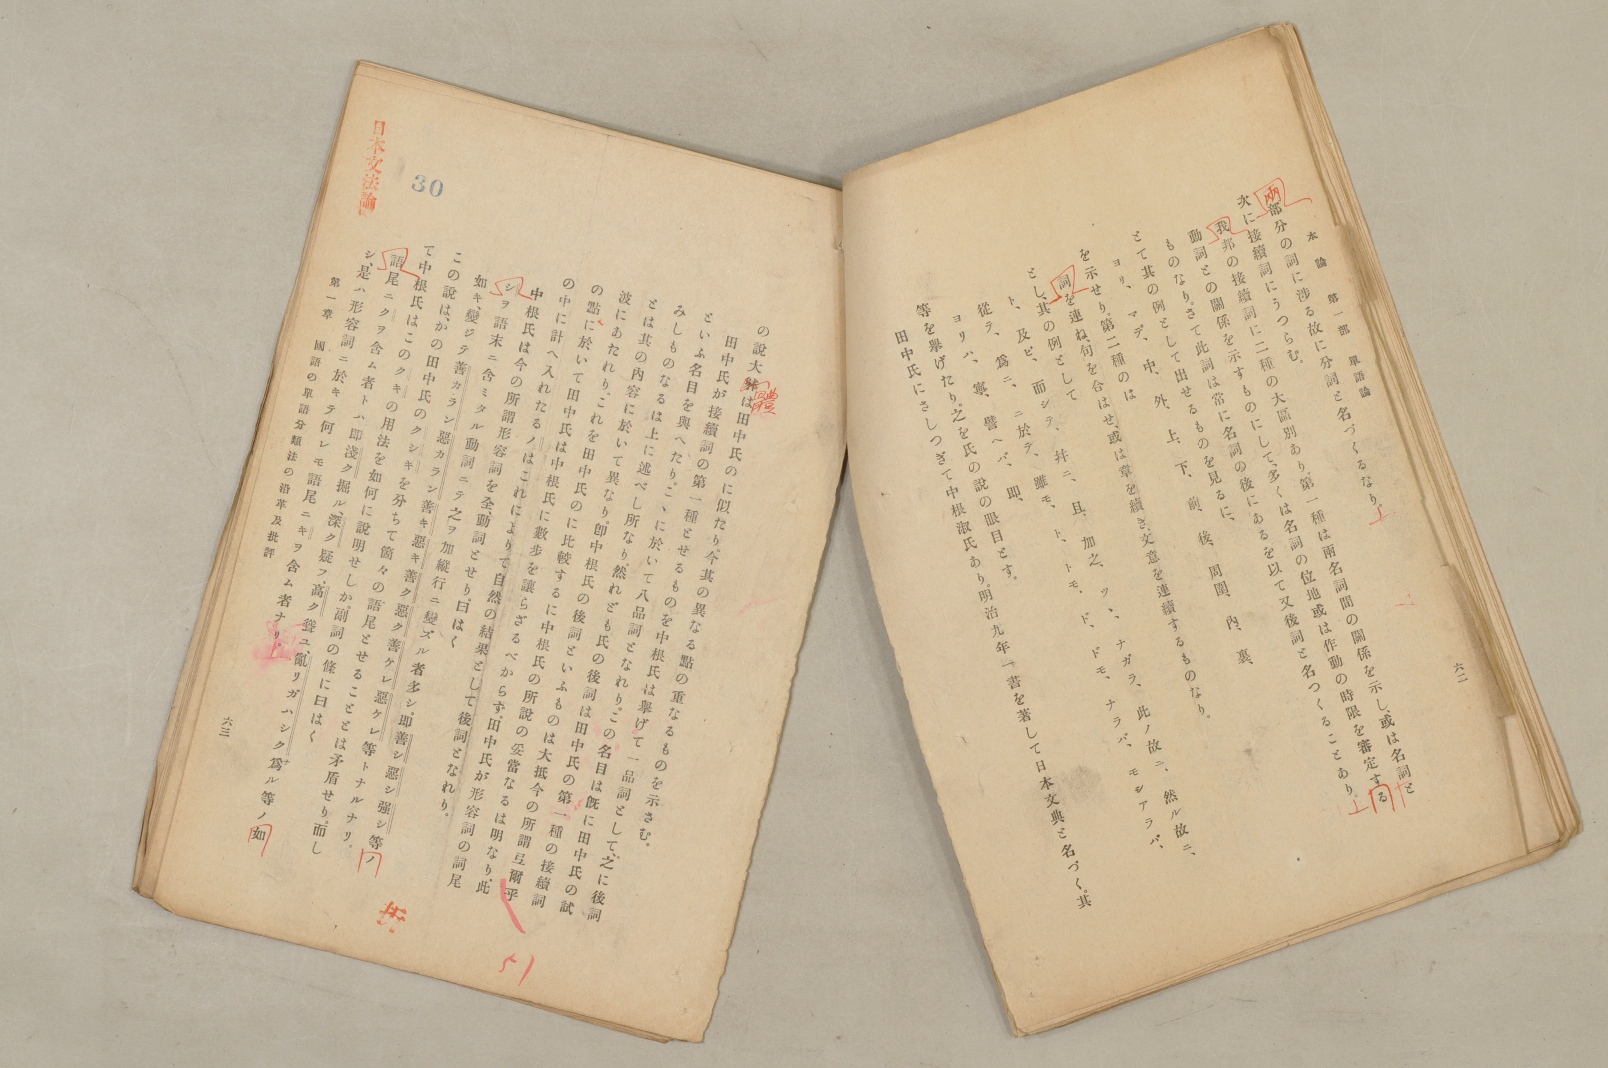 本論　第一部　單語論
六二
兩部分の詞に涉る故に分詞と名づくるなり。
次に接續詞にうつらむ。
我邦の接續詞に二種の大區別あり。第一種は兩名詞間の關係を示し、或は名詞と
動詞との關係を示すものにして、多くは名詞の位地或は作動の時限を審定する
ものなり。さて此詞は常に名詞の後にあるを以て又後詞と名つくることあり。
とて其の例として出せるものを見るに、
ヨリ、マデ、中、外、上、下、前、後、周圍、內、裏、
を示せり。第二種のは
詞を連ね、句を合はせ、或は章を續き、文意を連續するものなり。
とし、其の例として
ト、及ビ、而シテ、幷ニ、且、加之、ツヽ、ナガラ、此ノ故ニ、然ル故ニ、
從テ、爲ニ、ニ於テ、雖モ、ト、トモ、ド、ドモ、ナラバ、モシアラバ、
ヨリハ、寧、譬ヘバ、即、
等を擧げたり。之を氏の說の眼目とす。
田中氏にさしつぎて中根淑氏あり。明治九年一書を著して日本文典と名づく。其
日本文法論
30
の說大體は田中氏のに似たり。今其の異なる點の重なるものを示さむ。
體
田中氏が接續詞の第一種とせるものを中根氏は擧げて一品詞として、之に後詞
といふ名目を與へたり。こゝに於いて八品詞となれり。この名目は旣に田中氏の試
みしものなるは上に述べし所なり。然れども氏の後詞は田中氏の第一種の接續詞
とは其の內容に於いて異なり。卽中根氏の後詞といふものは大抵今の所謂弖爾乎
波にあたれり。これを田中氏のに比較するに中根氏の所說の妥當なるは明なり。此
の點に於いて田中氏は中根氏に數步を讓らざるべからず。田中氏が形容詞の詞尾
の中に計へ入れたるノはこれによりて自然の結果として後詞となれり。
中根氏は今の所謂形容詞を全、動詞とせり。曰はく
シヲ語末ニ含ミタル動詞ニテ之ヲ加縱行ニ變ズル者多シ。卽善シ惡シ强シ等ノ
如キ、變ジテ善カラン惡カラン善キ惡キ善ク惡ク善ケレ惡ケレ等トナルナリ。
この說は、かの田中氏のクシキを分ちて箇々の語尾とせることとは矛盾せり。而し
て中根氏はこのクキの用法を如何に說明せしか。副詞の條に曰はく
語尾ニクヲ含ム者トハ卽淺ク掘ル、深ク疑フ、高ク聳ユ、亂リガハシク爲ル等ノ如
シ、是ハ形容詞ニ於キテ何レモ語尾ニキヲ含ム者ナリ。
第一章　國語の單語分類法の沿革及批評
六三
51